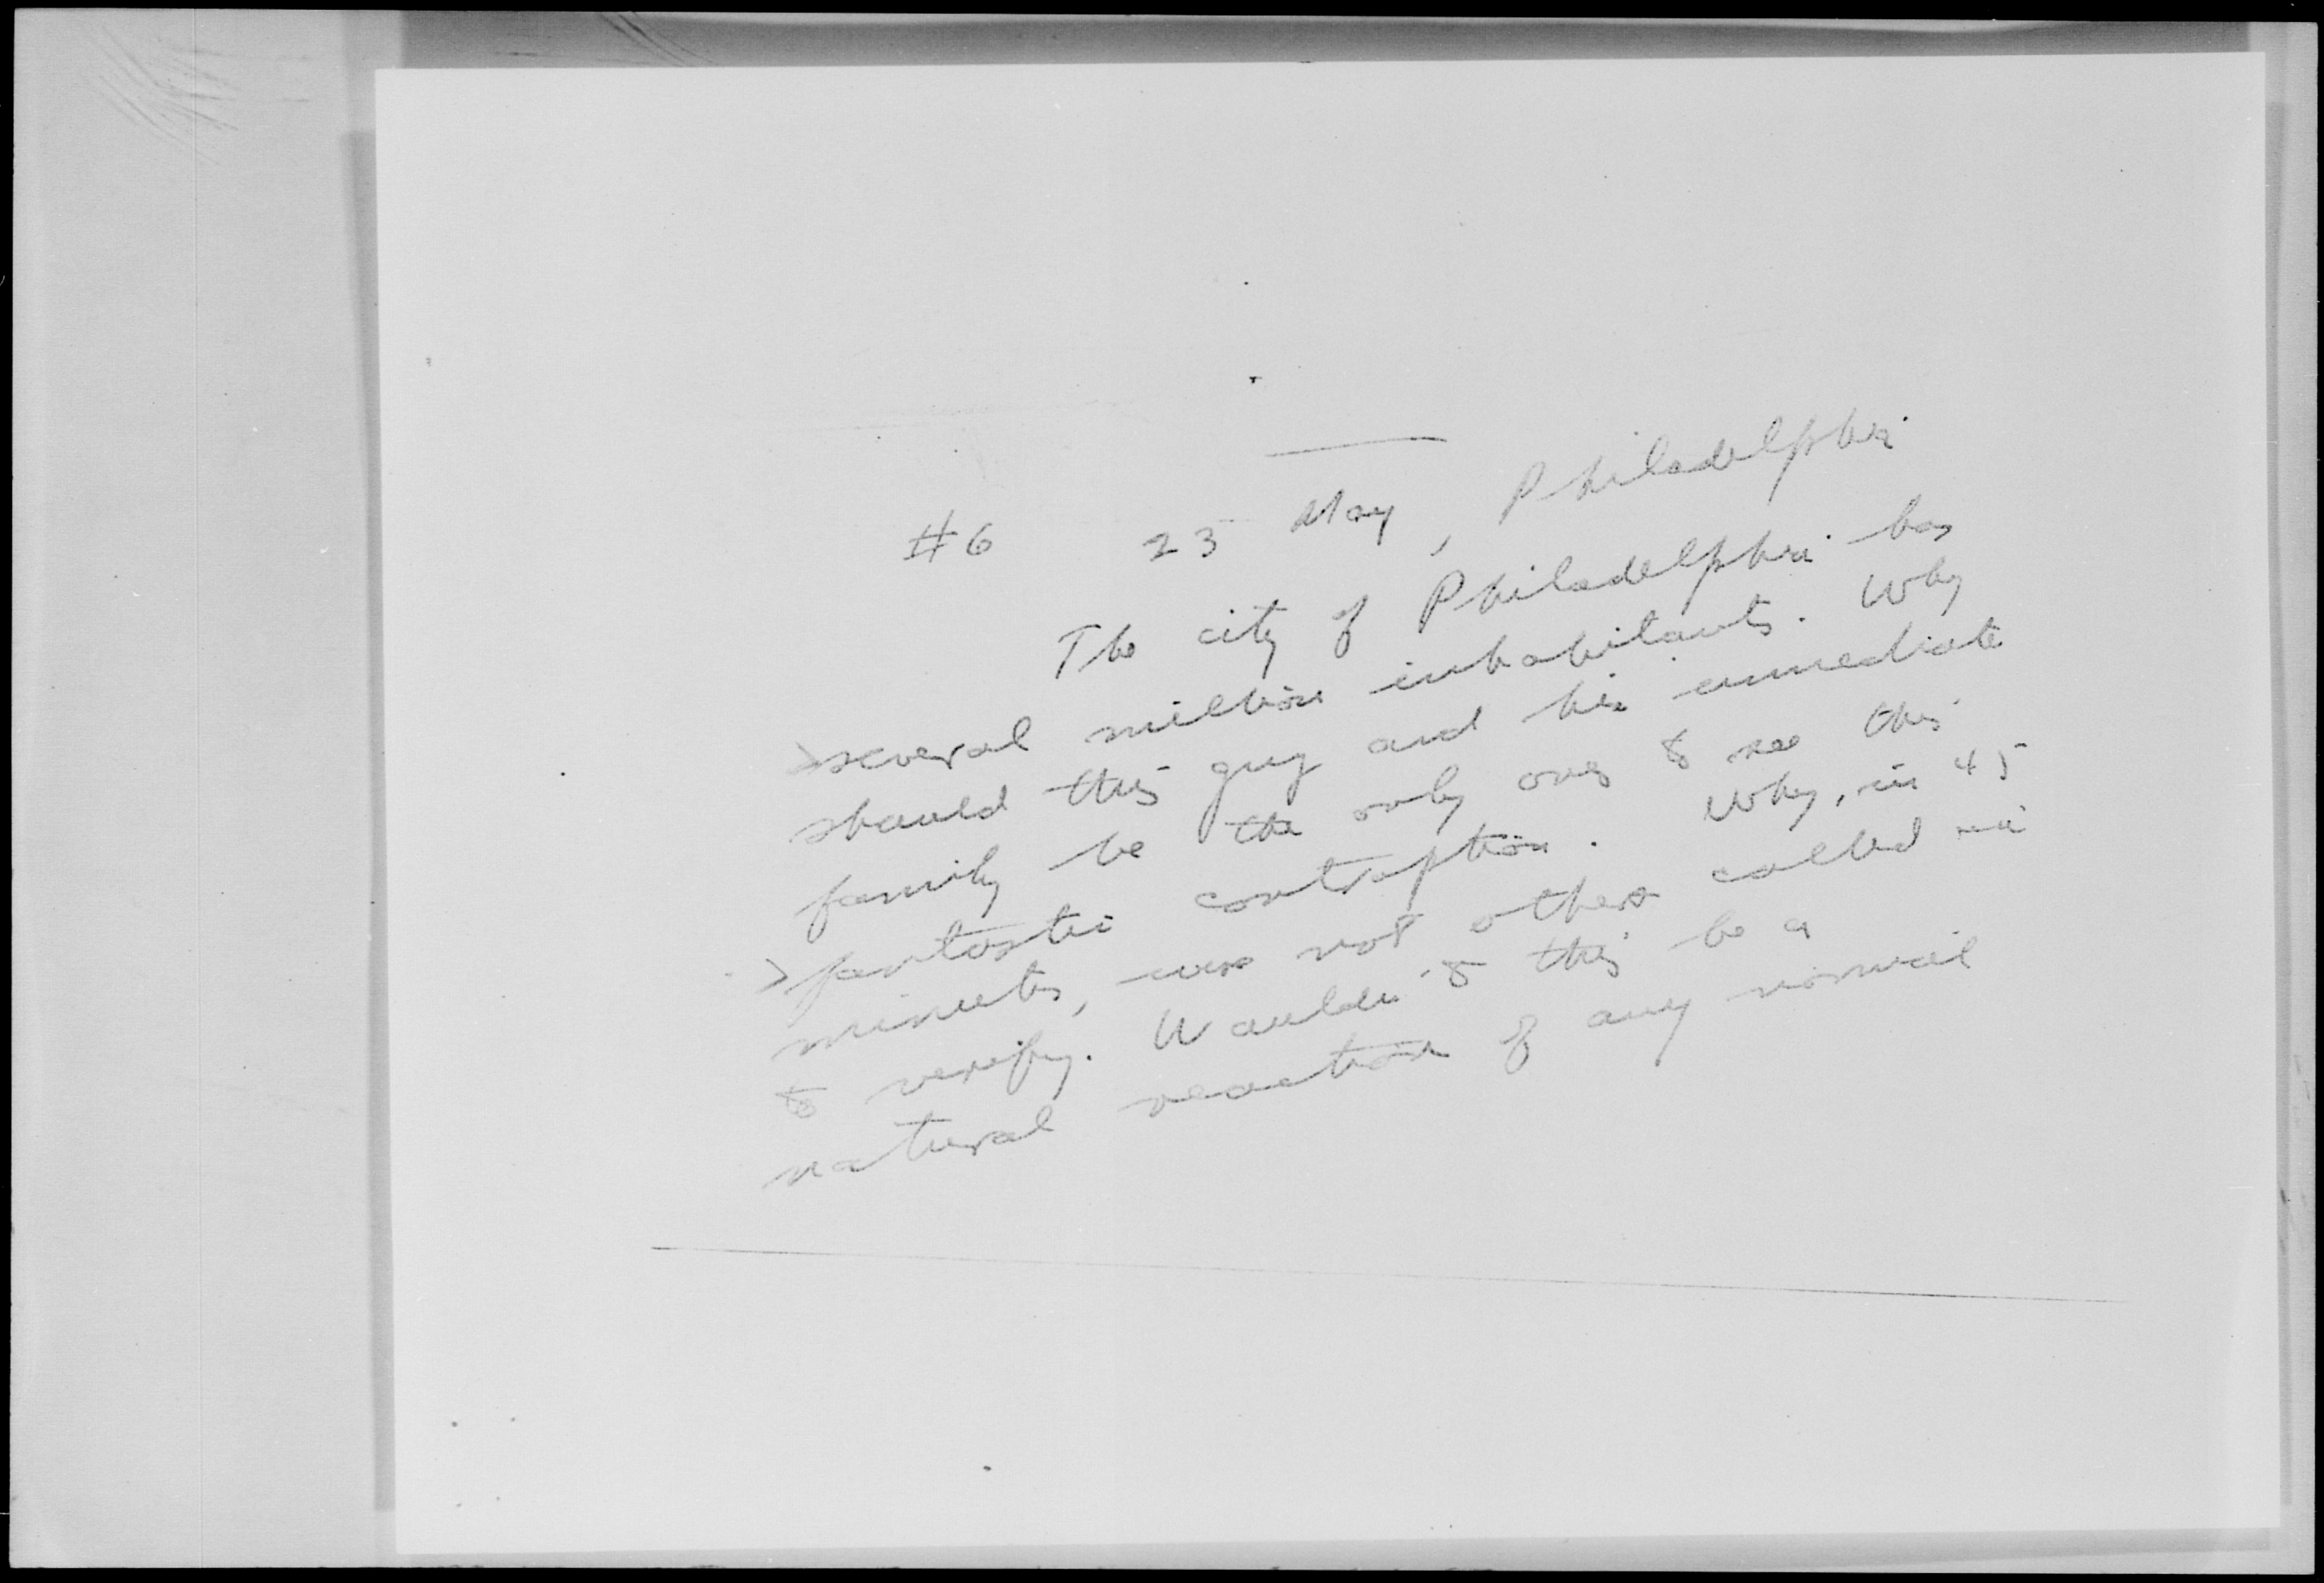 #6 23 May, Philadelphia
The city of Philadelphia has
several million inhabitants. Why
should this guy and his immediate
family be the only ones to see this
fantastic contraption. Why, in 45
minutes, were not others called in
to verify. Wouldn't this be a
natural reaction of any normal